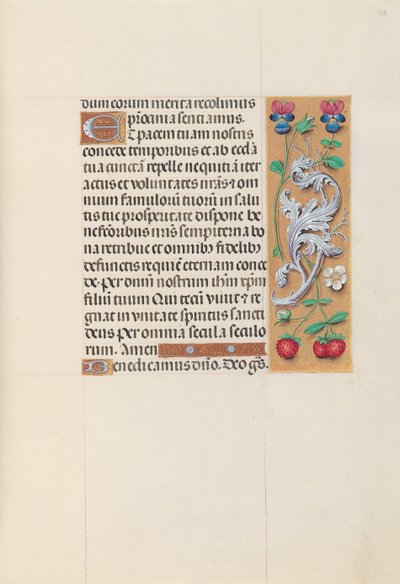 dum eorum merita recolimus
E patrocinia sentiamus.
Et pacem tuam nostris
concede temporibus et ab ecclā
tua cunctam repelle nequitā iter
actus et voluntates nrās ⁊ om
nium famulorum tuorum in salu
tis tue prosperitate dispone be
nefactoribus nrīs sempiterna bo
na retribue et omnibꝰ fidelibꝰ
defunctis requiē eternam conce
de. Per dnm nostrum ihm xpm
filiū tuum Qui tecū vivit ⁊ re
gnat in unitate spiritus sancti
deus per omnia secula seculo
rum. Amen
Benedicamus dno. Deo grs.